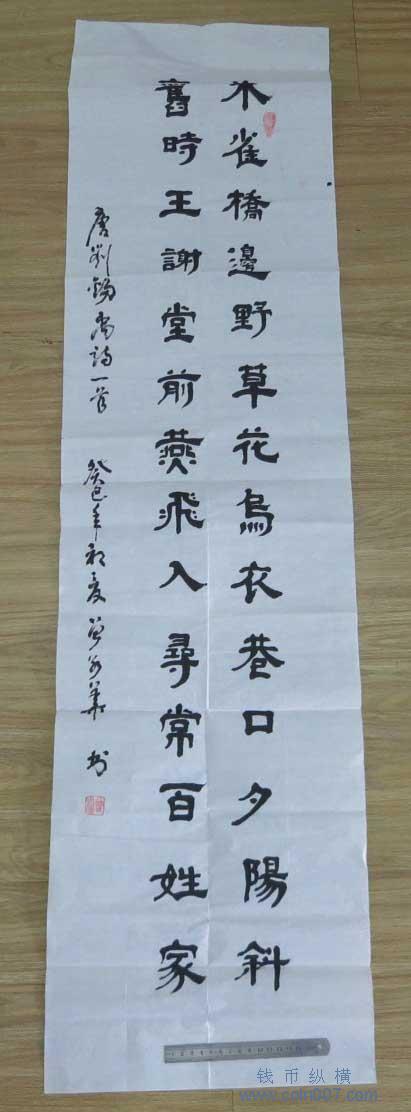 朱雀橋邊野草花烏衣巷口夕陽斜
舊時王謝堂前燕飛入尋常百姓家
唐劉錫禹詩一首 癸巳年初夏 華 书
钱币纵横
www.coin007.com